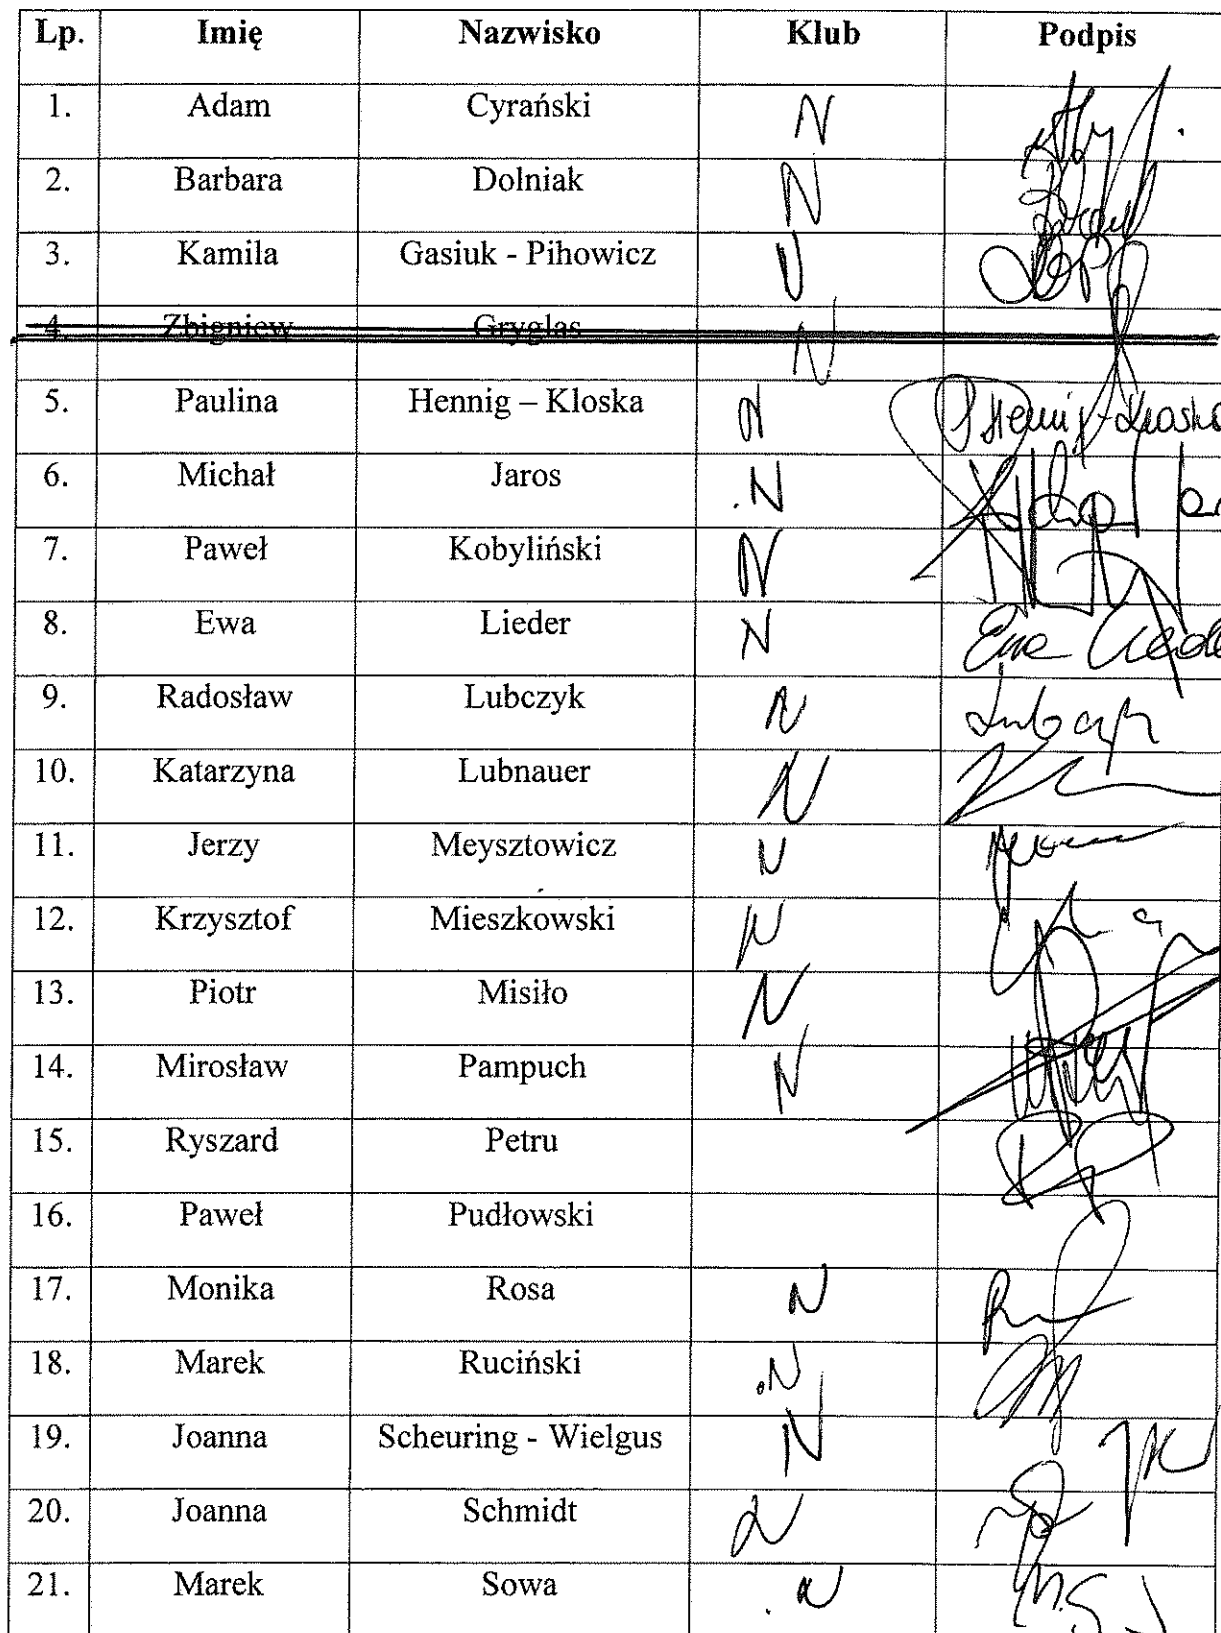 Lp. Imię Nazwisko Klub Podpis
1. Adam Cyrański N
2. Barbara Dolniak N
3. Kamila Gasiuk - Pihowicz N
4. Zbigniew Gryglas N
5. Paulina Hennig – Kloska N P Hennig-Kloska
6. Michał Jaros N
7. Paweł Kobyliński N
8. Ewa Lieder N Ewa Liede
9. Radosław Lubczyk N Lubczyk
10. Katarzyna Lubnauer N
11. Jerzy Meysztowicz N
12. Krzysztof Mieszkowski N
13. Piotr Misiło N
14. Mirosław Pampuch N
15. Ryszard Petru
16. Paweł Pudłowski
17. Monika Rosa N
18. Marek Ruciński N
19. Joanna Scheuring - Wielgus N
20. Joanna Schmidt N
21. Marek Sowa N M.S